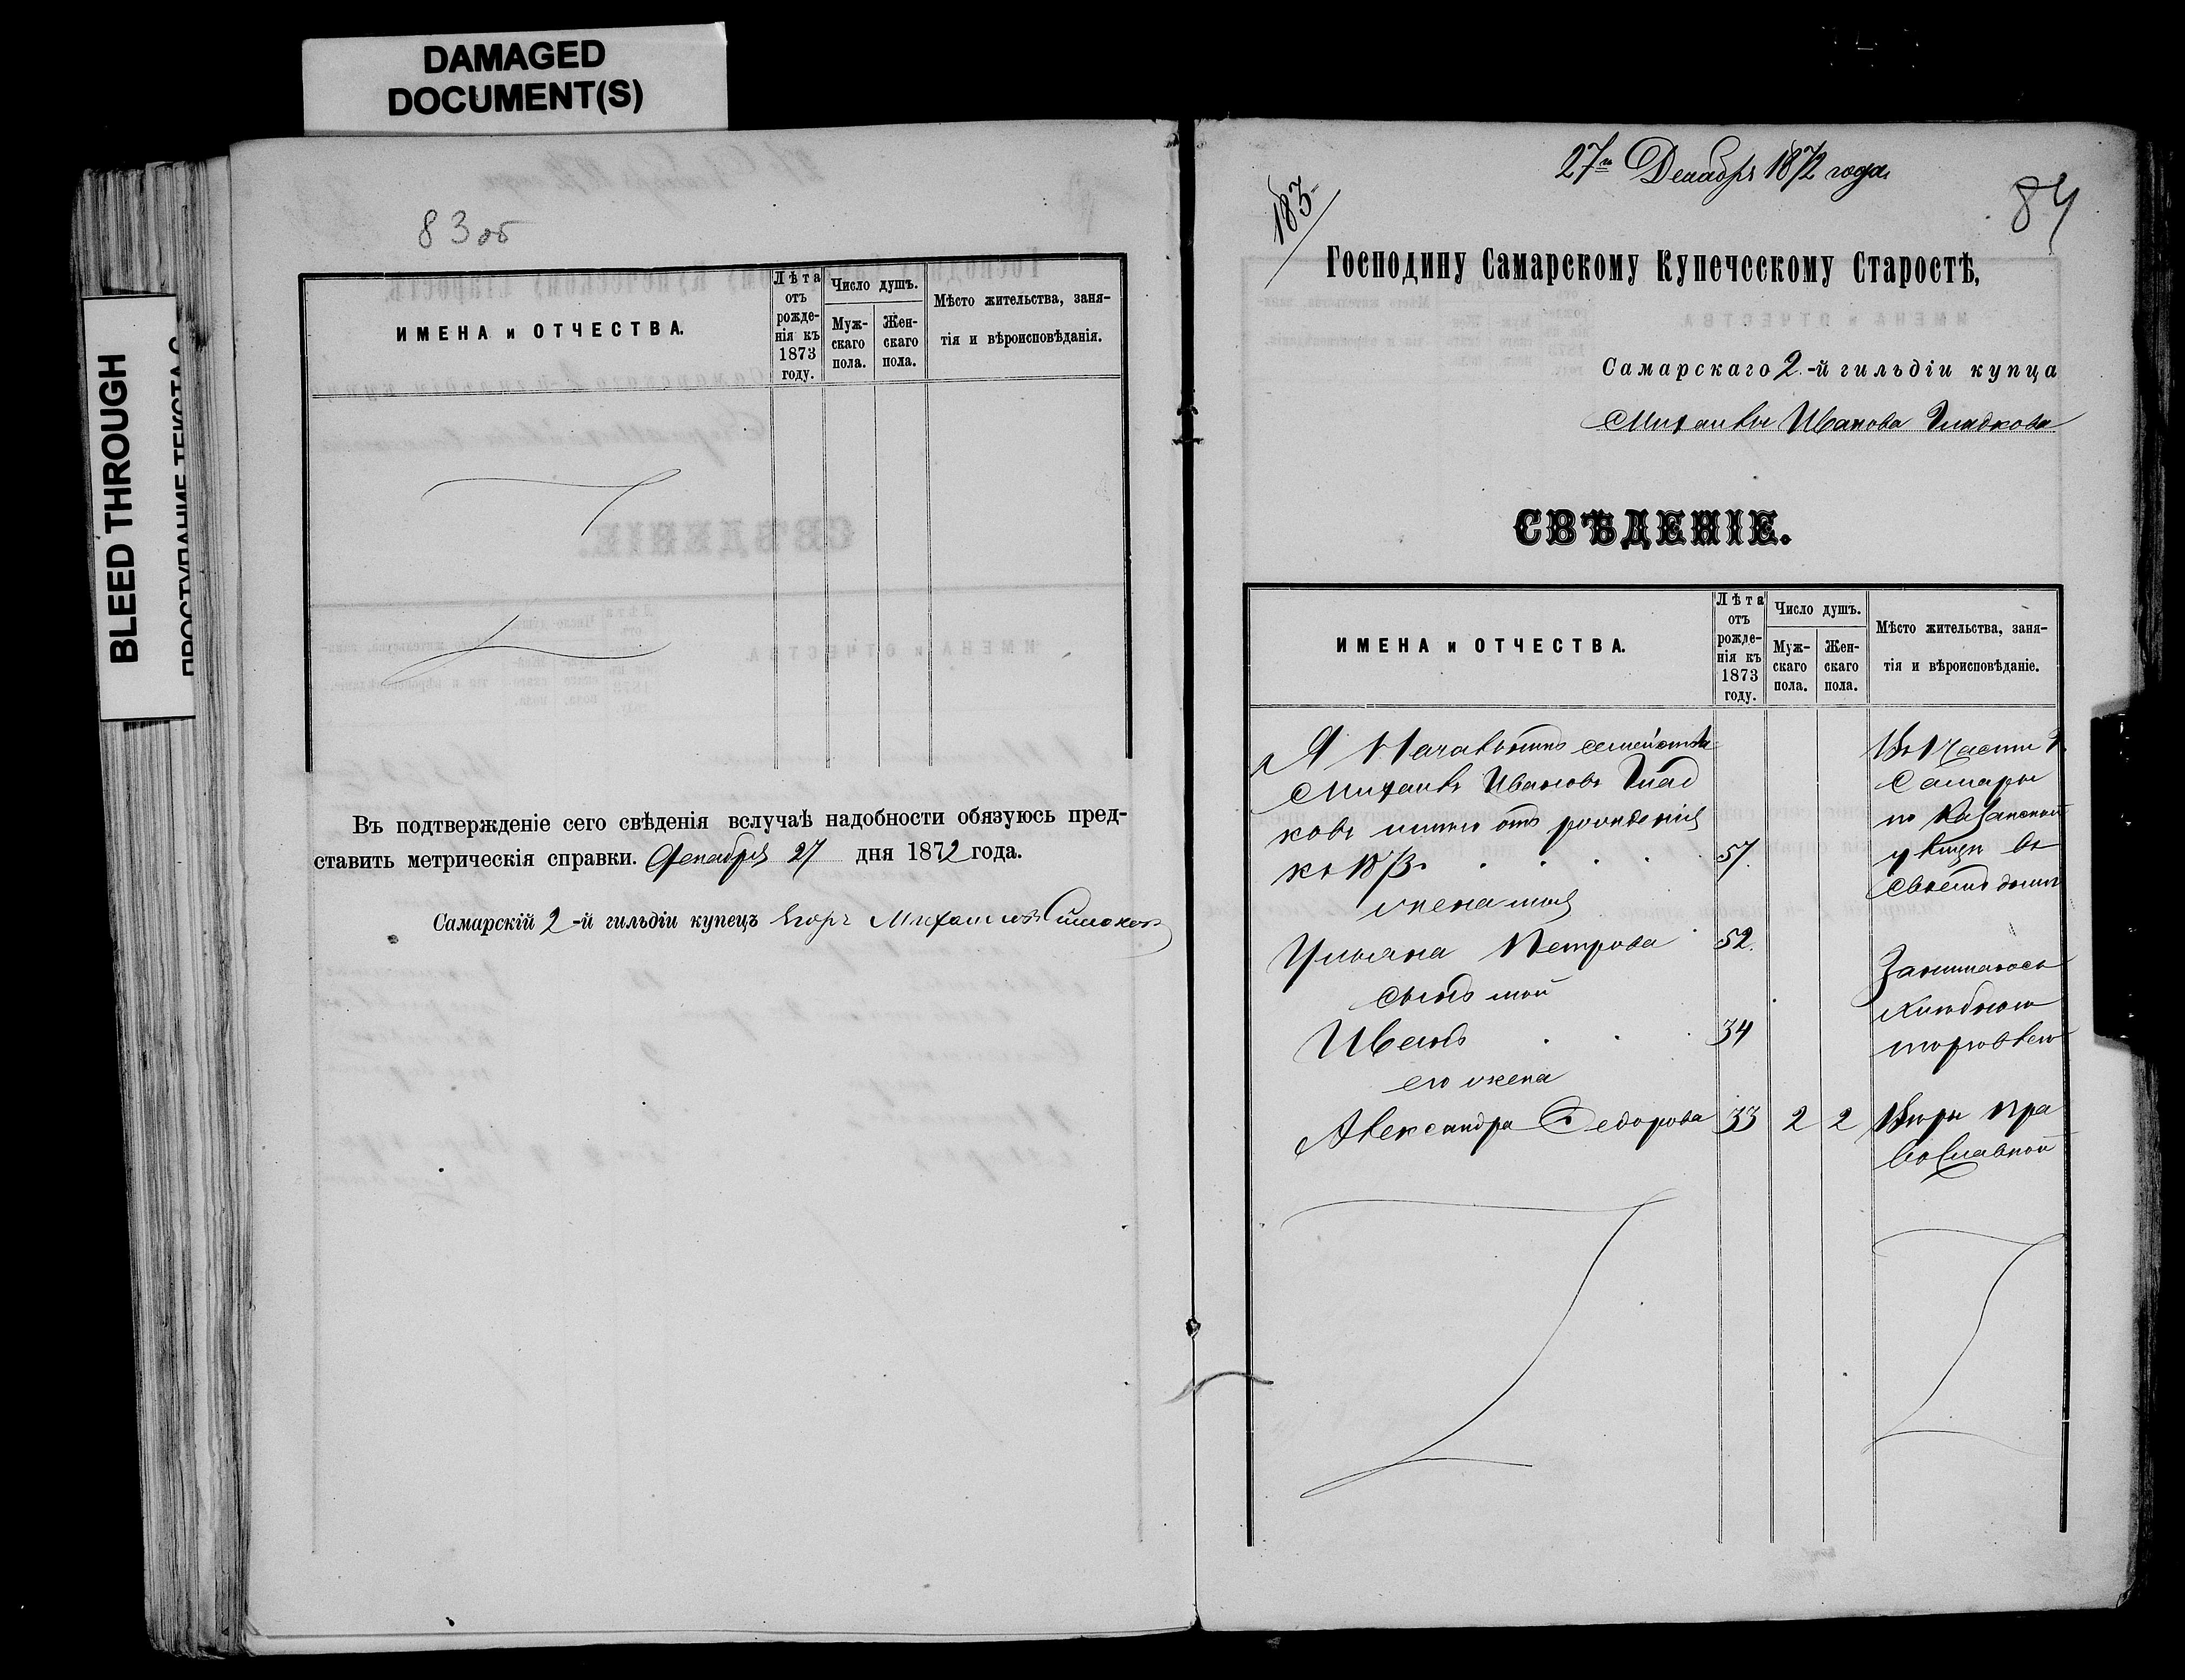 DAMAGED
DOCUMENT(S)
BLEED THROUGH
ПРОСТУПАНИЕ ТЕКСТА С
83 об
ИМЕНА и ОТЧЕСТВА.
Лѣта отъ рожденія къ 1873 году.
Число душъ.
Мужскаго пола.
Женскаго пола.
Мѣсто жительства, заня-
тія и вѣроисповѣданія.
Въ подтвержденіе сего свѣденія вслучаѣ надобности обязуюсь пред-
ставить метрическія справки. Декабря 27 дня 1872 года.
Самарскій 2-й гильдіи купецъ Егоръ Михаиловъ
27го Декабря 1872 года.
183
84
Господину Самарскому Купечсскому Старостѣ,
Самарскаго 2-й гильдіи купца
Михаилы Иванова Гладкова
СВѢДЕНІЕ.
ИМЕНА и ОТЧЕСТВА.
Лѣта
отъ
рожде-
нія къ
1873
году.
Число душъ.
Муж-
скаго
пола.
Жен-
скаго
пола.
Мѣсто жительства, заня-
тія и вѣроисповѣданіе.
Я Началникъ семейства
Михаилъ Ивановъ Глад
ковъ имѣю отъ рожденія
къ 1873 г. 57
жена моя
Ульяна Петрова 52.
сынъ мой
Иванъ 34
его жена
Александра Федорова 33 2 2
Въ 1 части г.
Самары
по Казанской
улицѣ въ
своемъ домѣ
Занимаюсь
хлѣбною
торговлею
Вѣры пра
вославной